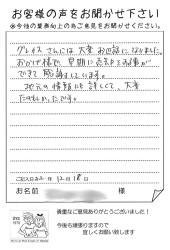 お客様の声をお聞かせ下さい
※今後の業務向上の為ご意見をお聞かせください。
グレイスさんには大変お世話になりました。
おかげ様で、早期に売却する事が
できて感謝しています。
地元の情報にも詳しくて、大変
たのもしかったです。
ご記入日 22年 12月 18日
お名前 様
貴重なご意見ありがとうございました！
今後も頑張りますので
宜しくお願い致します